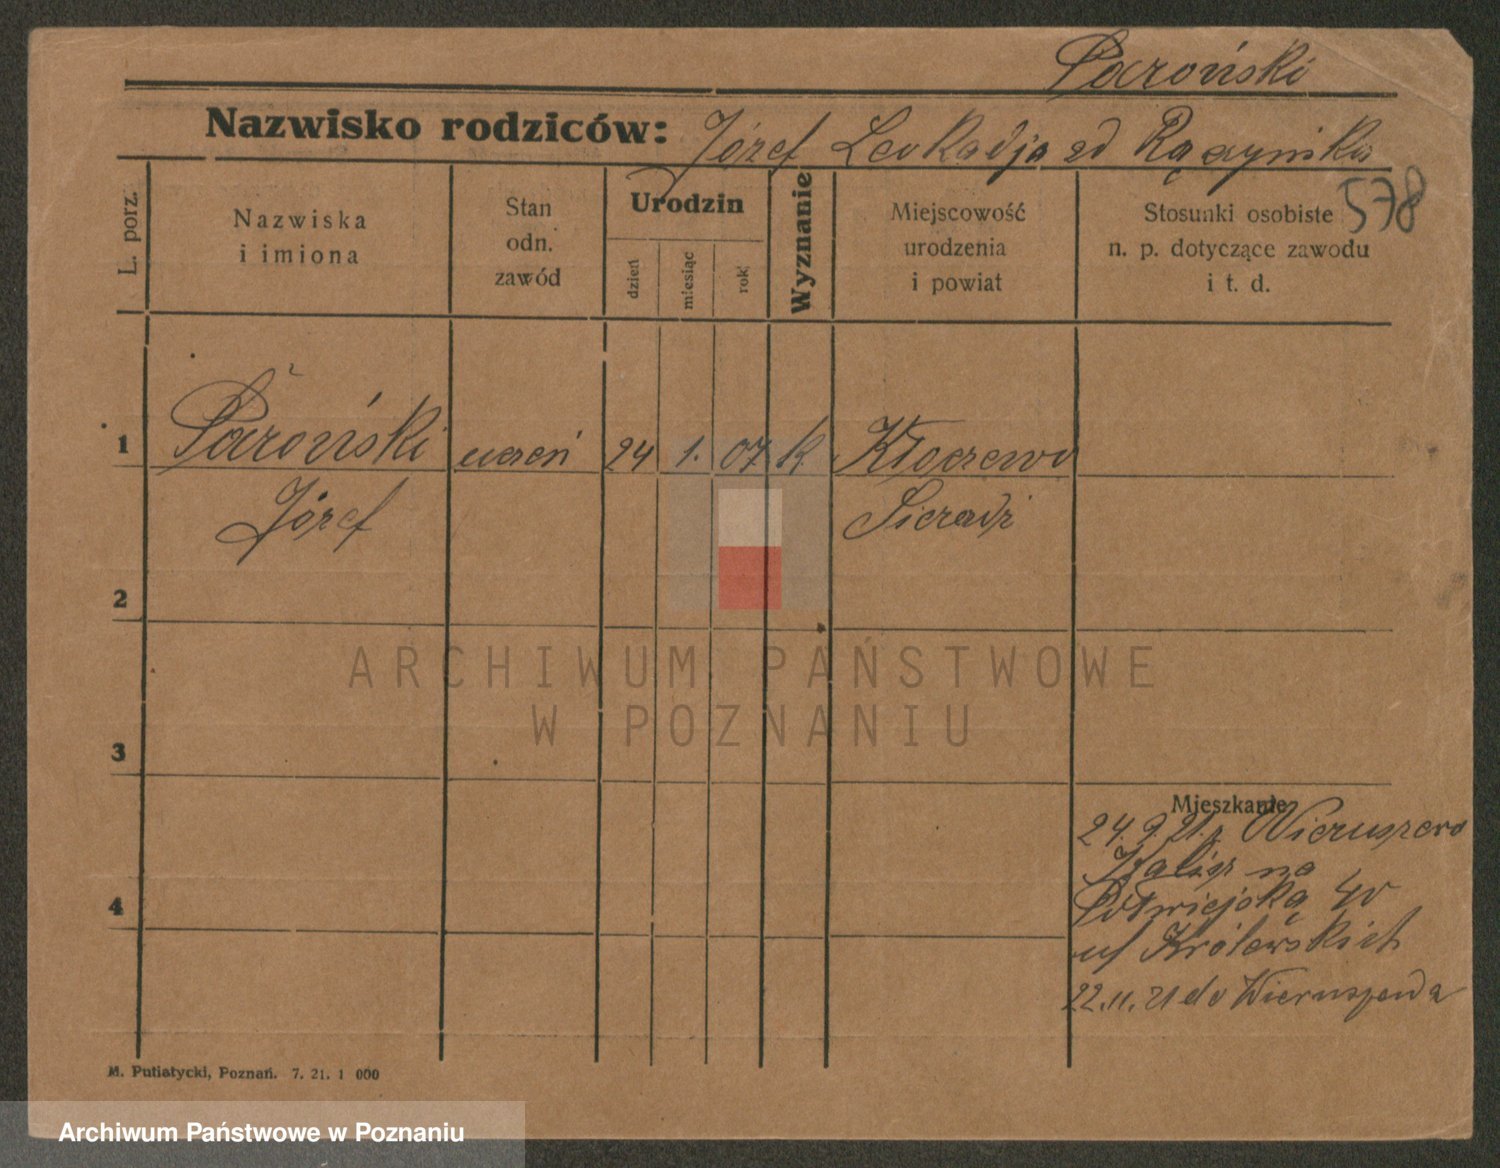 Paroński
Nazwisko rodziców: Józef Leokadja zd Rączyńska
578
L. porz.
Nazwiska
i imiona
Stan
odn.
zawód
Urodzin
dzień
miesiąc
rok
Wyznanie
Miejscowość
urodzenia
i powiat
Stosunki osobiste
n. p. dotyczące zawodu
i t. d.
1 Paroński uczeń 24 1. 07 k. Kłoczewo
Józef Sieradz
2
3
ARCHIWUM PAŃSTWOWE
W POZNANIU
Mieszkanie
24.9.21. z Wieruszewo
na
Półwiejską 40
u/ Królewskich
4
22.11.21 do Wieruszewa
M. Putiatycki, Poznań. 7. 21. 1 000
Archiwum Państwowe w Poznaniu